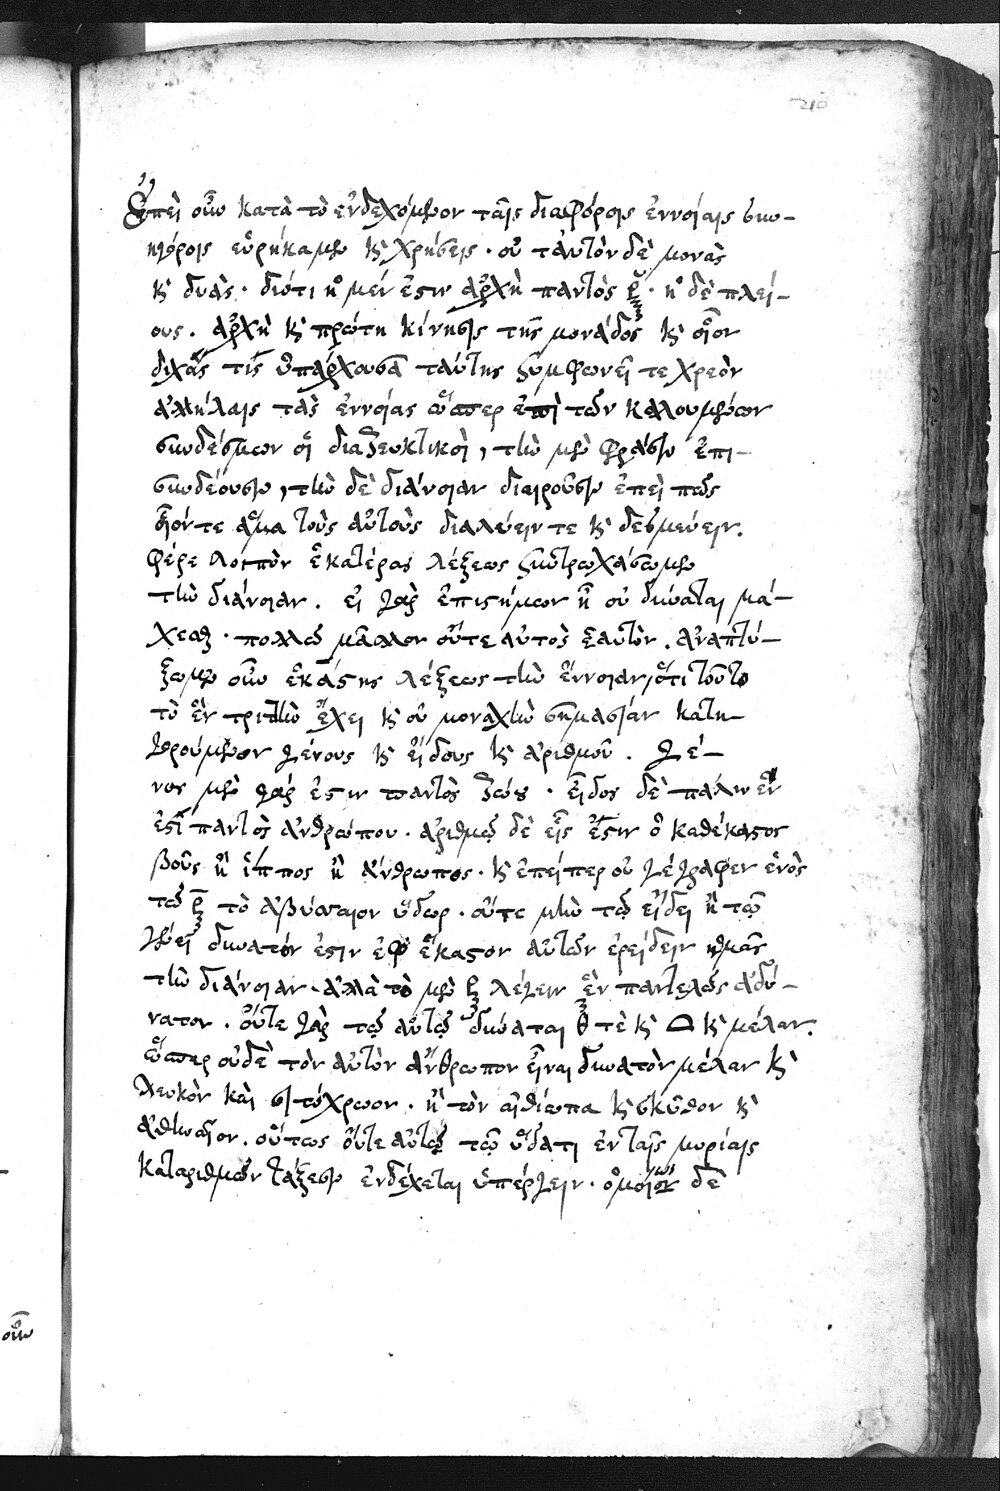 210
Ἐπεὶ οὖν κατὰ τὸ ἐνδεχόμενον ταῖς διαφόροις ἐννοίαις συν-
ηγόροις εὑρήκαμεν καὶ χρήσεις· οὐ ταὐτὸν δὲ μονὰς
καὶ δυὰς· διότι ἡ μέν ἐστιν ἀρχὴ παντὸς · ἡ δὲ πλεί-
ους. ἀρχὴ καὶ πρώτη κίνησις τῆς μονάδος καὶ οἷον
διχάς τις ὑπάρχουσα ταύτης συμφωνεῖ τε χρεὸν
ἀλλήλαις τὰς ἐννοίας ὥσπερ ἐπὶ τῶν καλουμένων
συνδέσμων οἱ διαζευκτικοὶ, τὴν μὲν φράσιν ἐπι-
συνδέουσιν, τὴν δὲ διάνοιαν διαιροῦσιν ἐπεὶ πῶς
οἷόν τε ἅμα τοὺς αὐτοὺς διαλύειν τε καὶ δεσμεύειν.
φέρε λοιπὸν ἑκατέρας λέξεως συντροχάσωμεν
τὴν διάνοιαν. εἰ γὰρ ἐπιστήμων ἢ οὐ δύναται μά-
χεσθαι· πολλῷ μᾶλλον οὔτε αὐτὸς ἑαυτὸν. ἀναπτύ-
ξωμεν οὖν ἑκάστης λέξεως τὴν ἔννοιαν, ὅτι τοῦτο
τὸ ἓν τριττὴν ἔχει καὶ οὐ μοναχὴν σημασίαν κατη-
γορούμενον γένους καὶ εἴδους καὶ ἀριθμοῦ. γέ-
νος μὲν γάρ ἐστιν παντὸς ζώου· εἶδος δὲ πάλιν ἓν
ἐστὶ παντὸς ἀνθρώπου· ἀριθμῷ δὲ εἷς ἐστιν ὁ καθέκαστος
βοῦς ἢ ἵππος ἢ ἄνθρωπος· καὶ ἐπείπερ οὐ γέγραφεν ἑνὸς
τῷ τὸ ἀβύσσαιον ὕδωρ· οὔτε μὴν τῷ εἴδει ἢ τῷ
γένει δυνατόν ἐστιν ἐφ' ἕκαστον αὐτῶν ἐρείδειν ἡμᾶς
τὴν διάνοιαν· ἀλλὰ τὸ μὲν λέγειν ἓν παντελῶς ἀδύ-
νατον. οὔτε γὰρ τῷ αὐτῷ δύναται τε καὶ καὶ μέλαν.
ὥσπερ οὐδὲ τὸν αὐτὸν ἄνθρωπον εἶναι δυνατὸν μέλαν καὶ
λευκὸν καὶ σιτόχρωον. ἢ τὸν αἰθίωπα καὶ σκύθον καὶ
αἰθίωπον. οὕτως οὔτε αὐτῷ τῷ ὕδατι ἐν ταῖς μυρίαις
καταριθμῶν τάξεσιν ἐνδέχεται ὑπέργειν· ὁμοίως δὲ
οὖν